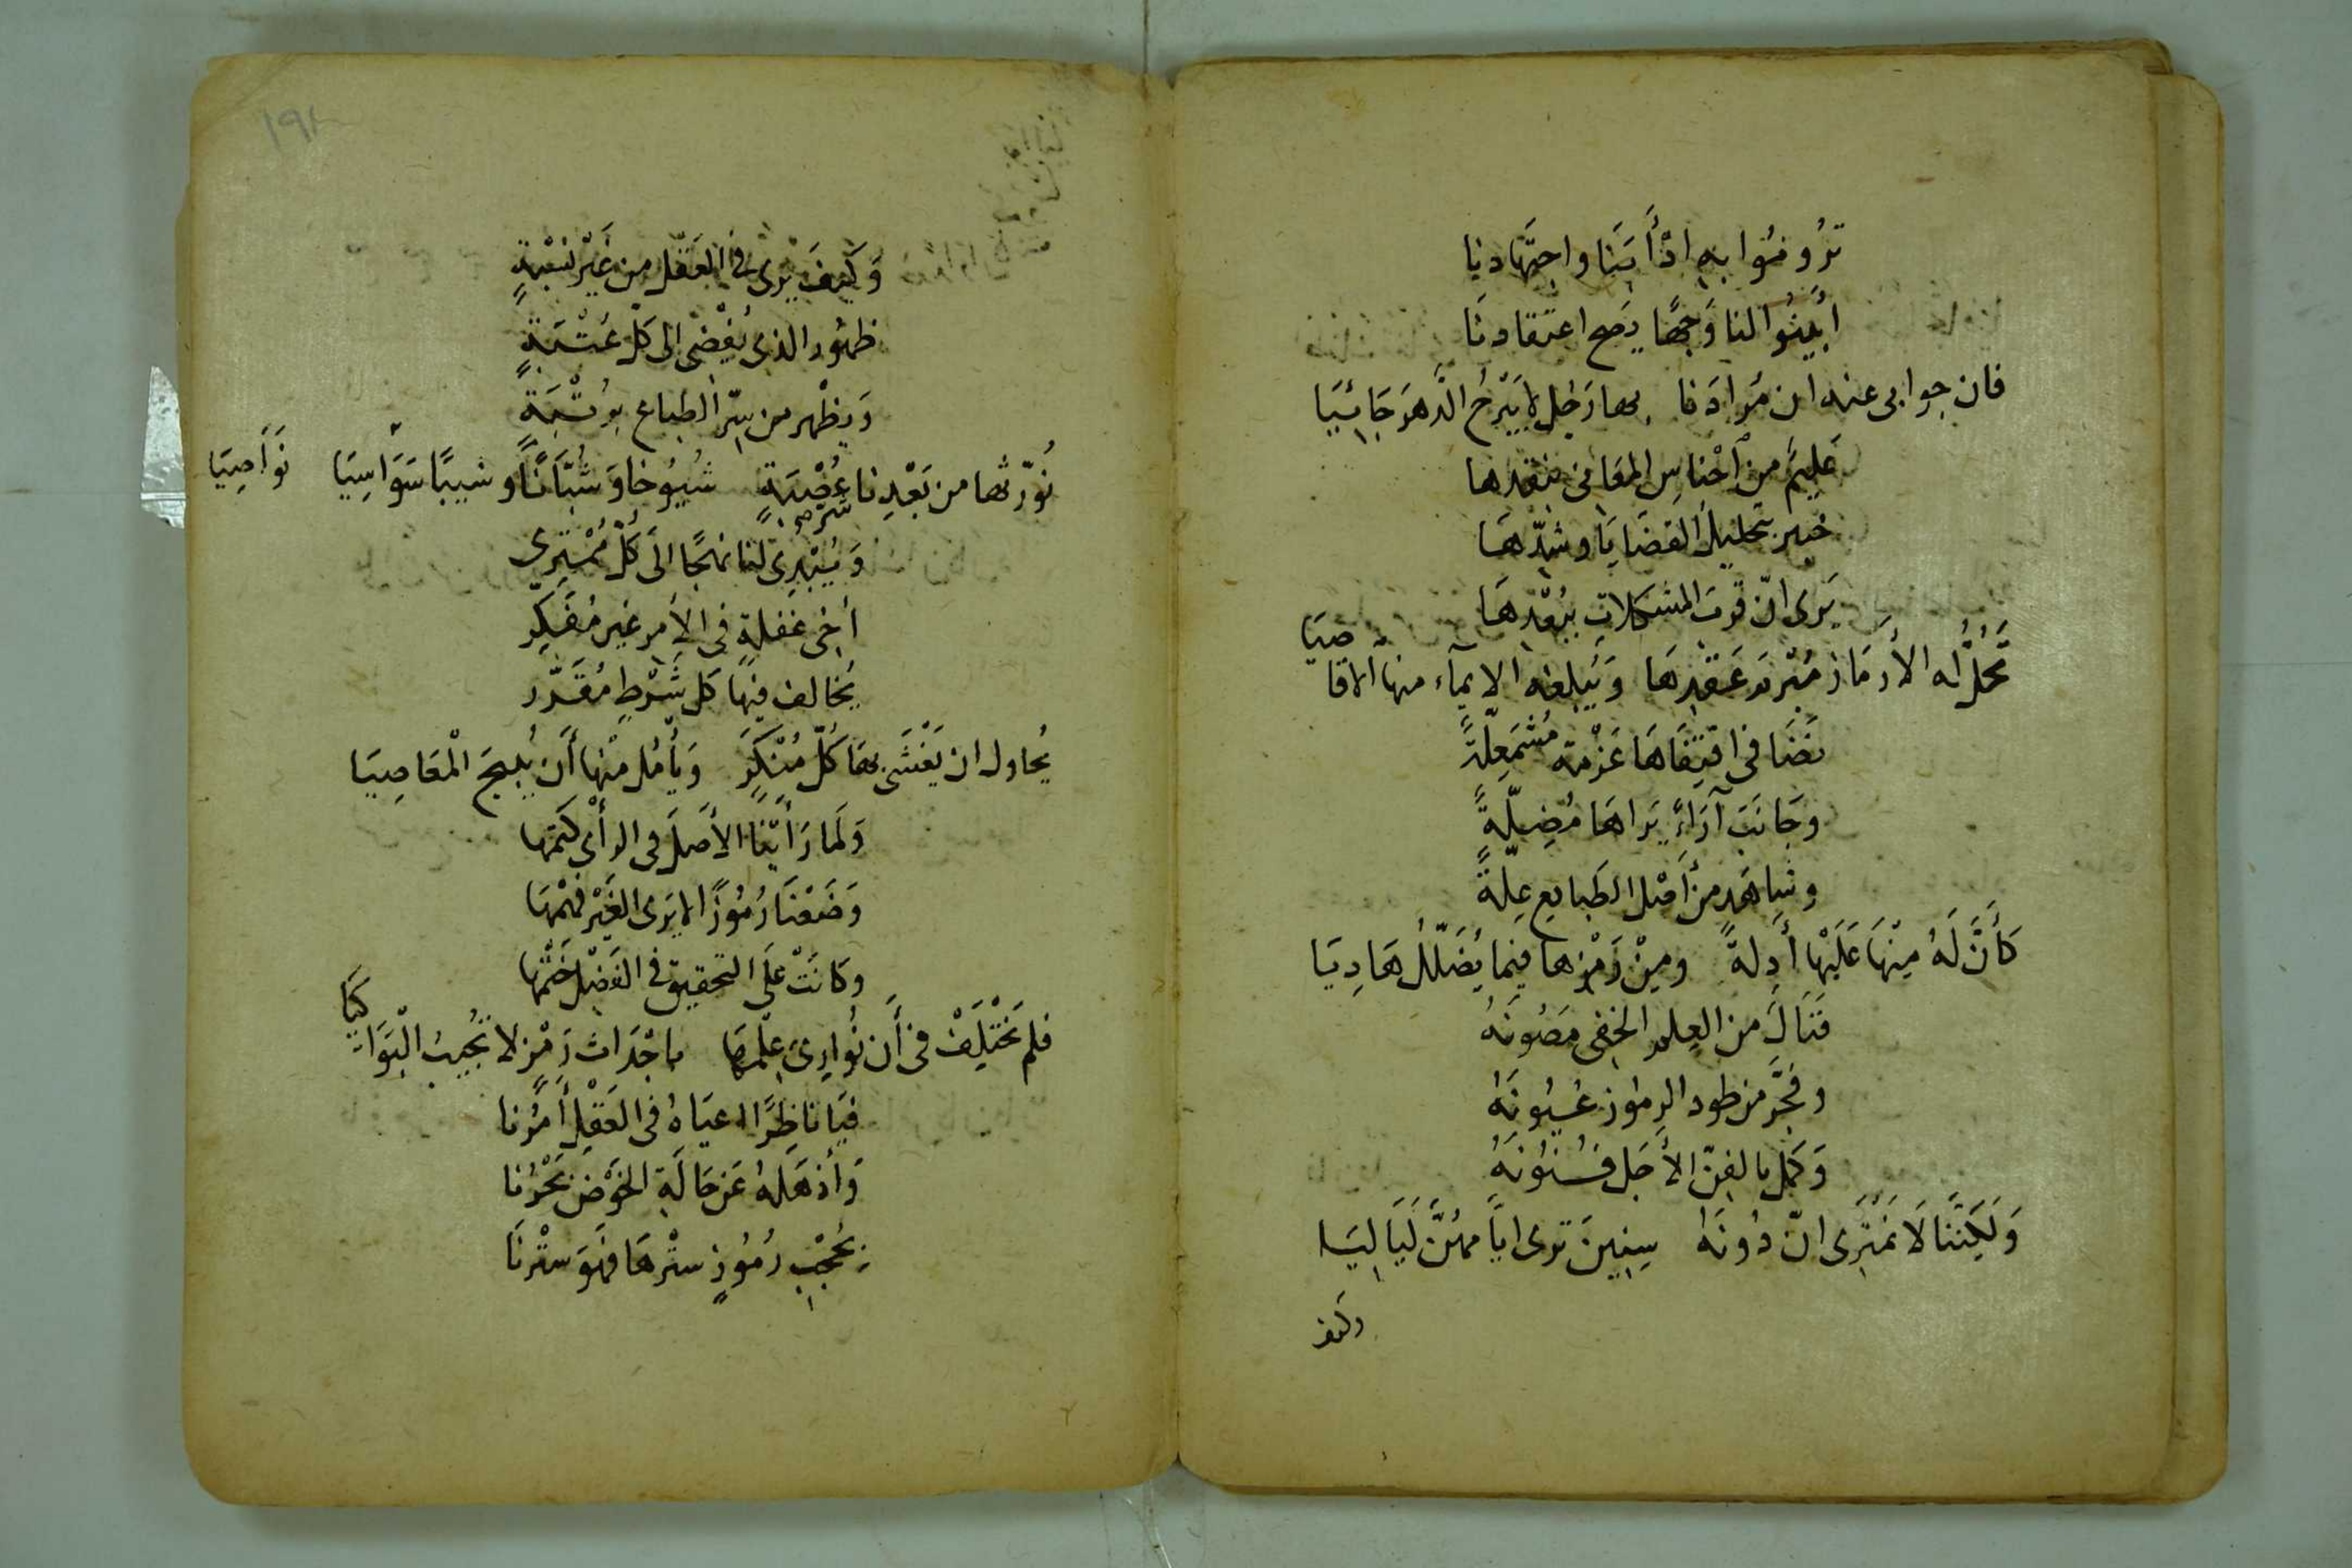 ترُومُوا بهِ ادْأبَنَا واجتهَادنا
أبينُوا لنا وَجهًا يَصح اعتقادنَا
فان جوابى عنه ان مَرادَنا بها رَجُل لا يَبْرحُ الدَّهرَ جَاثيَا
عَليمٌ من اَجْناسِ المعَانى بنقدها
خبير بتحليل القضَايَا وشدّهَا
يَرى انّ قربَ المشكلاتِ ببُعْدهَا
تَحُلُّ له الأرمَاز مُبْرمَ عَقدِهَا وَيُبلغه الايمآء منها الاقاصيَا
نضَا فى اقتِفَاهَا عَزْمة مُشْمَعِلّةً
وجَانَبَ آرَاءً يَراهَا مُضِلّةً
وشاهَدَ من أصْل الطبايع عِلّةً
كَأَنَّ لَهُ مِنْهَا عَلَيْها أَدِلةً ومِنْ رَمْزها فيما يُضَلّلُ هَادِيَا
فَنَالَ من العِلمِ الخفى مَصُونَهُ
وفجَّر من طود الرموز عُيُونَهُ
وَكمّل بالفنّ الأجَل فُنُونَهُ
وَلَكِنَّنَا لَا نَمْتَرى انّ دُونَهُ سِنِينَ ترى ايّامهُنَّ لَيَالِيَا
وكيف
١٩٨
وَكَيفَ يَرى فى العَقل من غَيْر نسْبَةٍ
ظهُور الذى يُفْضى الى كلّ عُتْبَةٍ
وَيظْهر من سِرّ الطباع بِرُتْبَةٍ
نُورّثها من بَعْدِنا عُصْبَةٍ شُيُوخا وَشُبَّانًا وشيبًا سَوَاسِيَا نَوَاصِيَا
وَيَنْبَرِى لنا نهجًا الَى كُلّ مُمْتَرِى
أخى غفلةٍ فى الأمر غير مُفَكِّر
يُخَالف فيهَا كل شَرْطٍ مُقَدَّر
يُحاول ان يَغْشَى بهَا كُلّ مُنْكَرٍ وَيأمُل مِنْها أن يُبيحَ الْمَعَاصِيَا
وَلَما رَأيْنَا الأصلَ فى الرأى كتمها
وَضَعْنَا رُمُوزًا لا يَرى الغَيْر فهْمَهَا
وكانَتْ عَلَى التحقيق فى الفَضْل خَتْمَها
فلم نختَلفْ فى أن نُوارِىَ عِلْمهَا باجْدَاث رَمْزٍ لا تُجيبُ الْبَوَاكيَا
فيَا ناظِرًا اعيَاهُ فى العَقْلِ أمْرُنا
وَأذهَلهُ عَن حَالَةِ الخَوْض بَحْرُنا
بحُجْبِ رُمُوزٍ سَتْرهَا فهوَ سَتْرنَا